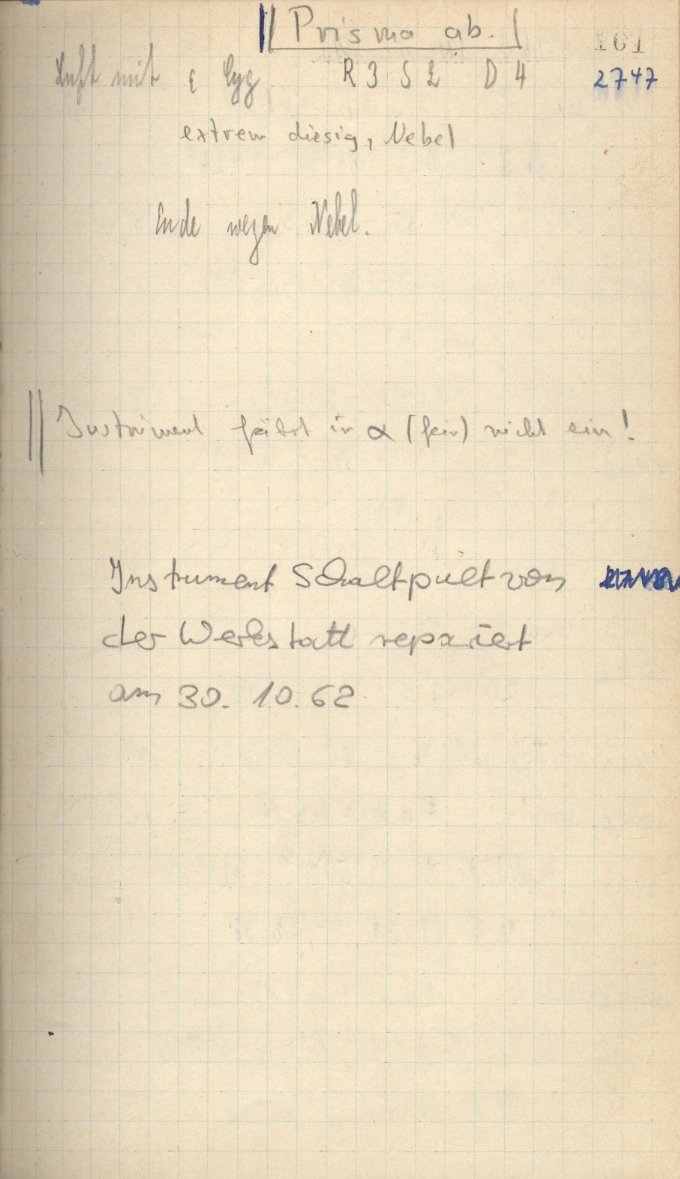 || Prisma ab. |
161
Luft mit ε Cyg R3 S2 D4 2747
extrem diesig, Nebel
Ende wegen Nebel.
|| Instrument fährt in α (fein) nicht ein!
Instrument Schaltpult von
der Werkstatt repariert
am 30. 10. 62